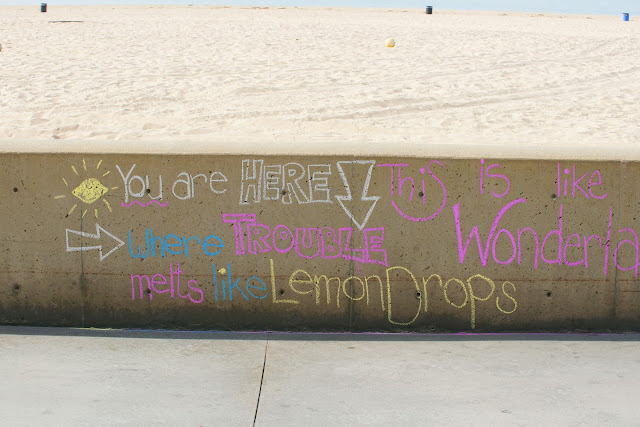 You are HERE
Where TROUBLE
melts like LemonDrops
This is like
Wonderla